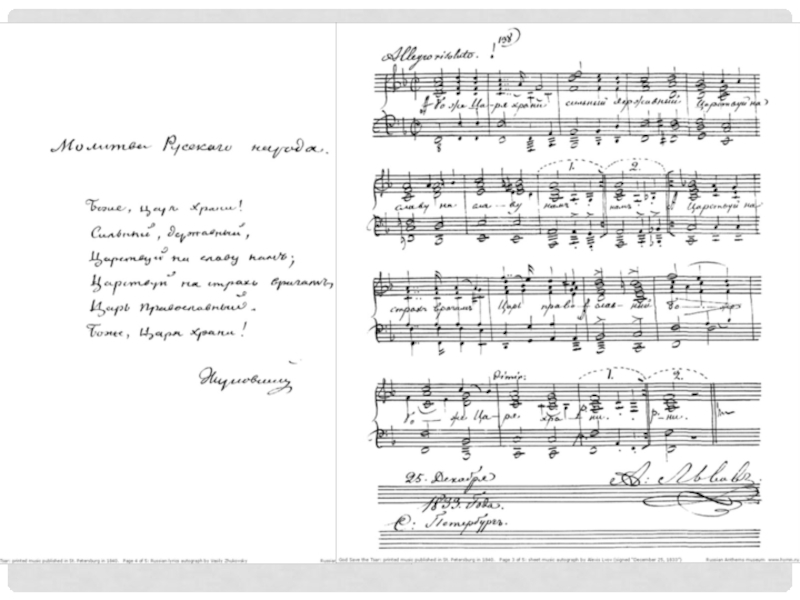 Молитва Русскаго народа.
Боже, Царя храни!
Сильный, державный,
Царствуй на славу намъ;
Царствуй на страхъ врагамъ,
Царь Православный.
Боже, Царя храни!
Жуковский
Allegro risoluto.
Боже Ца-ря храни сильный державный Царствуй на
славу на- сла- ву намъ намъ Царствуй на
1. 2.
страхъ врагамъ Царь право- слав- ный Бо
dimin:
1. 2.
Бо - же Ца- ря хра ни. ни.
25. Декабря
1833. Года.
С: Петербургъ.
А: Львовъ.
Tsar: printed music published in St. Petersburg in 1840. Page 4 of 5: Russian lyrics autograph by Vasily Zhukovsky
Russian
God Save the Tsar: printed music published in St. Petersburg in 1840. Page 3 of 5: sheet music autograph by Alexis Lvov (signed "December 25, 1833")
Russian Anthems museum